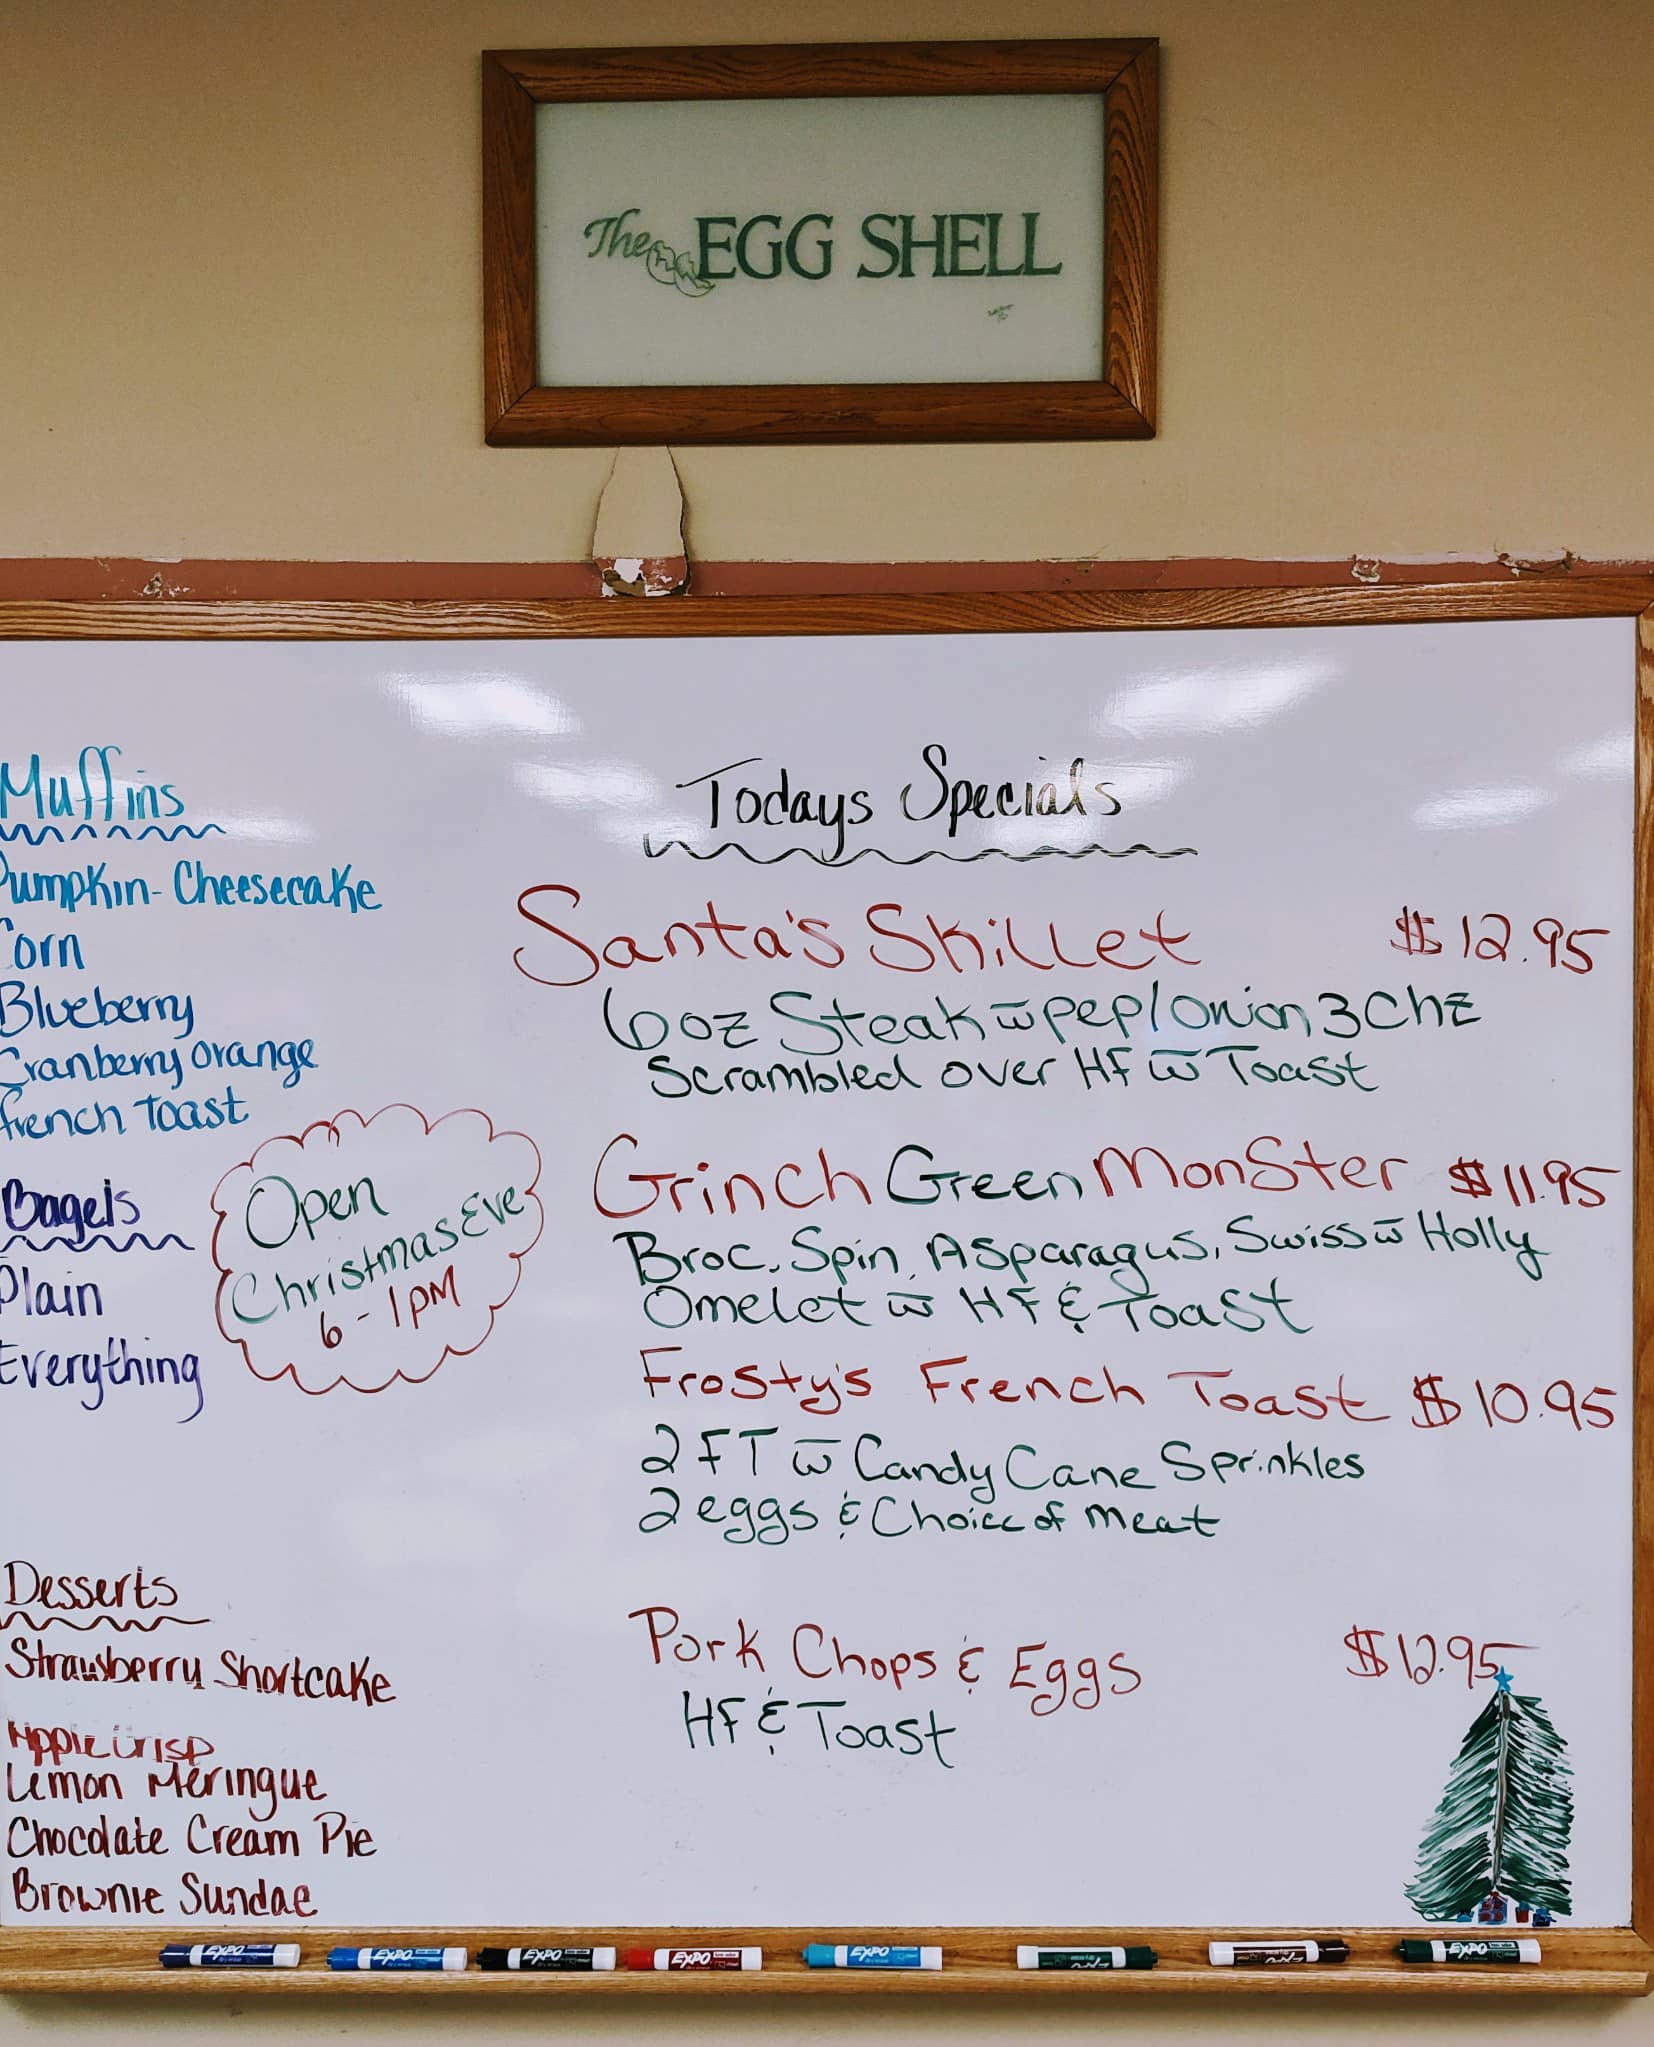 The EGG SHELL
Muffins
Pumpkin-Cheesecake
Corn
Blueberry
Cranberry orange
French Toast
Bagels
Plain
Everything
Open
Christmas Eve
6-1PM
Desserts
Strawberry Shortcake
Apple Crisp
Lemon Meringue
Chocolate Cream Pie
Brownie Sundae
Todays Specials
Santa's Skillet $12.95
6oz Steak w̅ pep/onion 3 Chz
Scrambled over HF w̅ Toast
Grinch Green Monster $11.95
Broc, Spin, Asparagus, Swiss w̅ Holly
Omelet w̅ HF & Toast
Frosty's French Toast $10.95
2 FT w̅ Candy Cane Sprinkles
2 eggs & Choice of meat
Pork Chops & Eggs $12.95
HF & Toast
EXPO
EXPO
EXPO
EXPO
EXPO
EXPO
EXPO